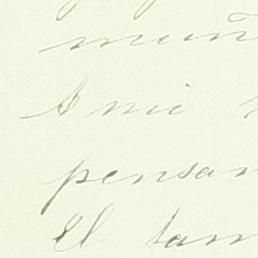 muñ
A mi
pensan
El tan